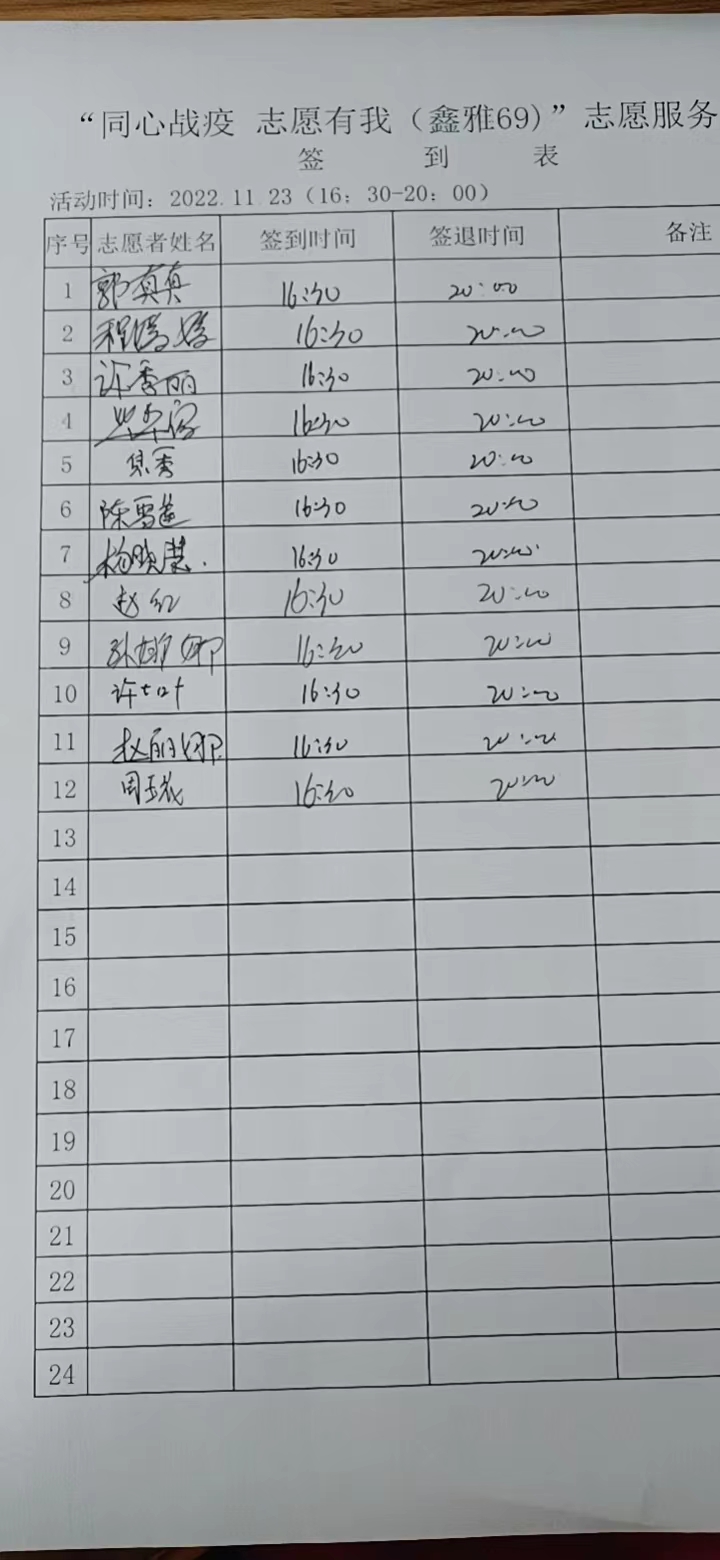 “同心战疫 志愿有我（鑫雅69)”志愿服务
签 到 表
活动时间：2022.11.23（16：30-20：00）
序号 志愿者姓名 签到时间 签退时间 备注
1 郭真真 16:30 20:00
2 程婷婷 16:30 20:00
3 许秀丽 16:30 20:00
4 16:30 20:00
5 16:30 20:00
6 陈雪莲 16:30 20:00
7 杨晓慧 16:30 20:00
8 赵红 16:30 20:00
9 孙娜娜 16:30 20:00
10 16:30 20:00
11 赵丽娜 16:30 20:00
12 16:30 20:00
13
14
15
16
17
18
19
20
21
22
23
24